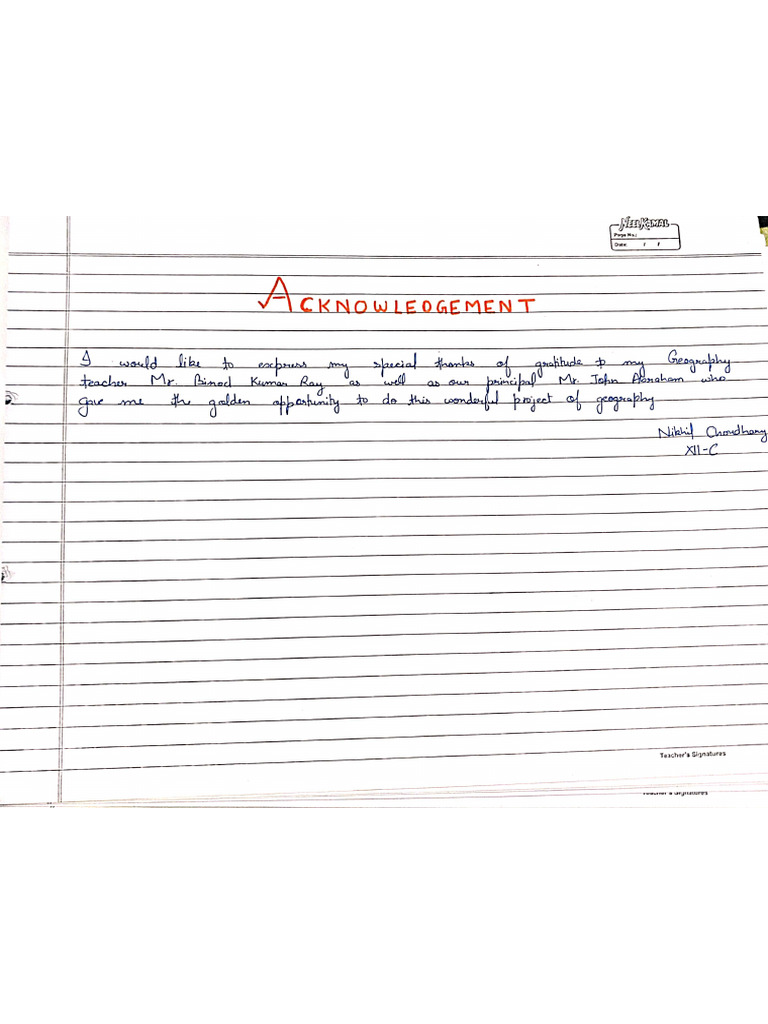 NEELKAMAL
Page No.:
Date: / /
ACKNOWLEDGEMENT
I would like to express my special thanks of gratitude to my Geography
teacher Mr. Binod Kumar Ray as well as our principal Mr. John Abraham who
gave me the golden opportunity to do this wonderful project of geography
Nikhil Choudhary
XII-C
Teacher's Signatures
Teacher's Signatures